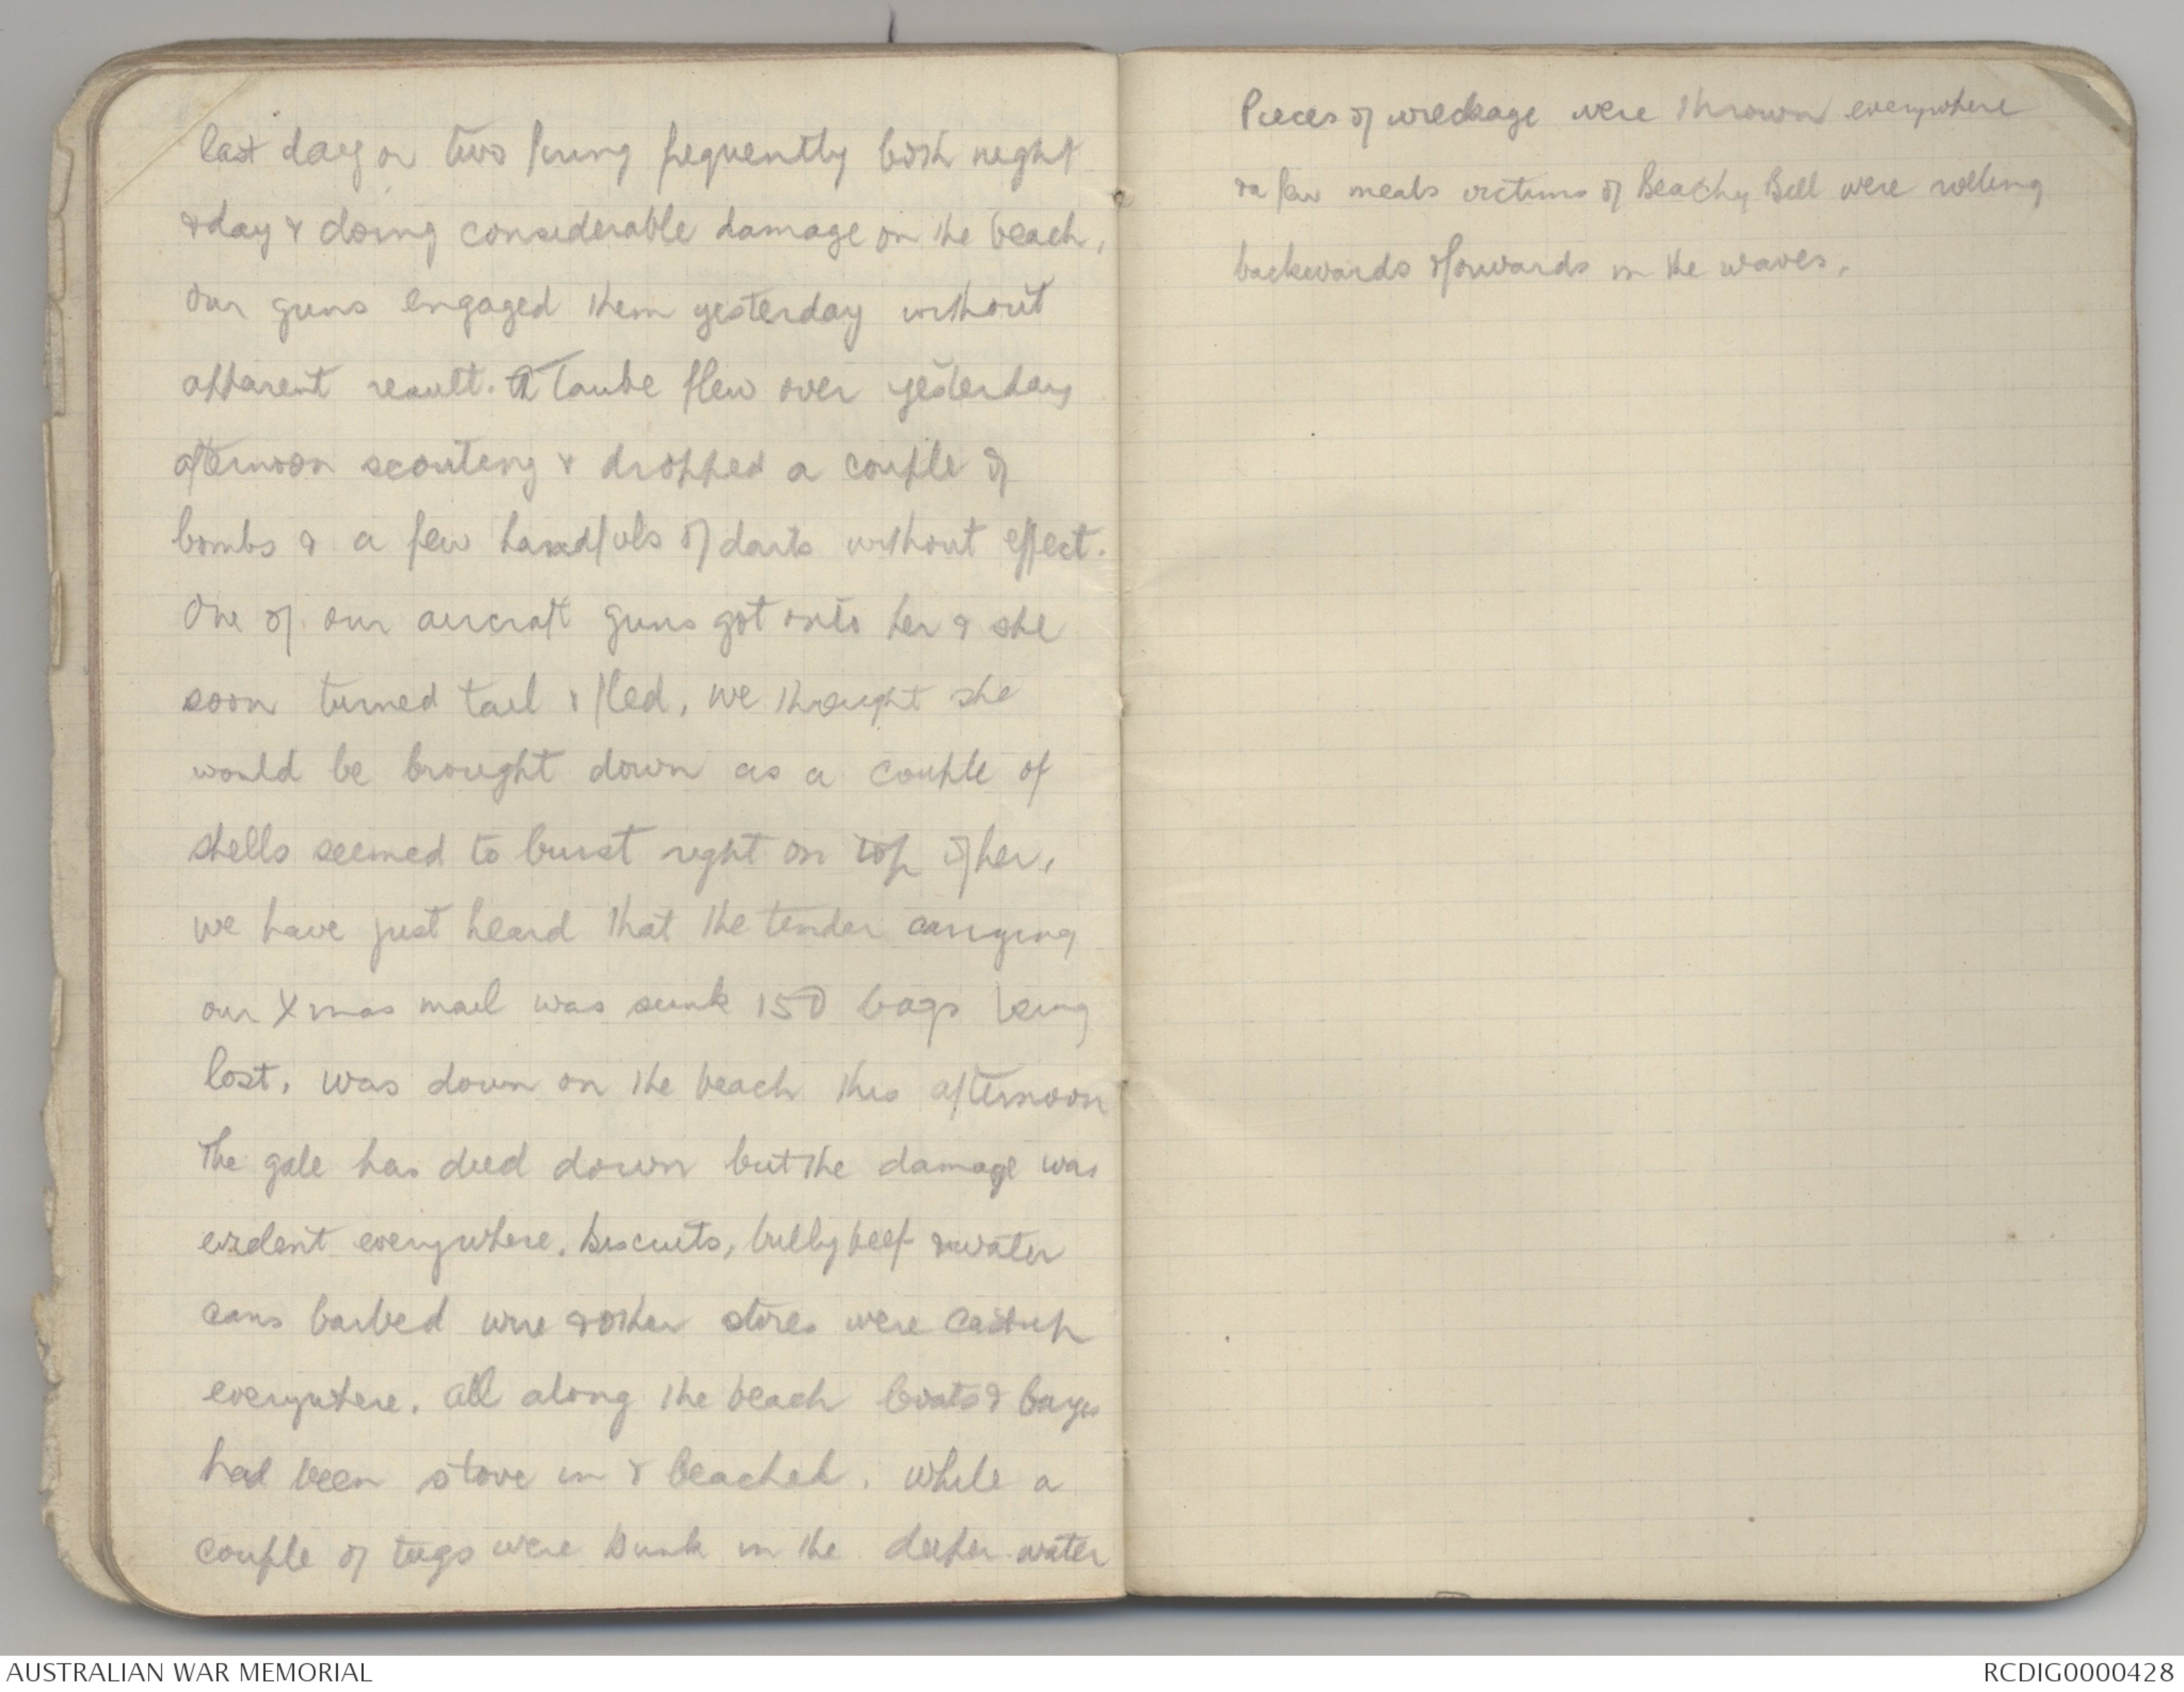 last day or two firing frequently both night
& day & doing considerable damage on the beach,
our guns engaged them yesterday without
apparent result. A Taube flew over yesterday
afternoon scouting & dropped a couple of
bombs & a few handfuls of darts without effect.
One of our aircraft guns got onto her & she
soon turned tail & fled, we thought she
would be brought down as a couple of
shells seemed to burst right on top of her,
we have just heard that the tender carrying
our Xmas mail was sunk 150 bags being
lost, was down on the beach this afternoon
The gale has died down but the damage was
evident everywhere, biscuits, bully beef & water
cans barbed wire & other stores were cast up
everywhere. All along the beach boats & barges
had been stove in & beached, while a
couple of tugs were sunk in the deeper water
Pieces of wreckage were thrown everywhere
& a few meals victims of Beachy Bill were rolling
backwards & forwards in the waves,
AUSTRALIAN WAR MEMORIAL
RCDIG0000428